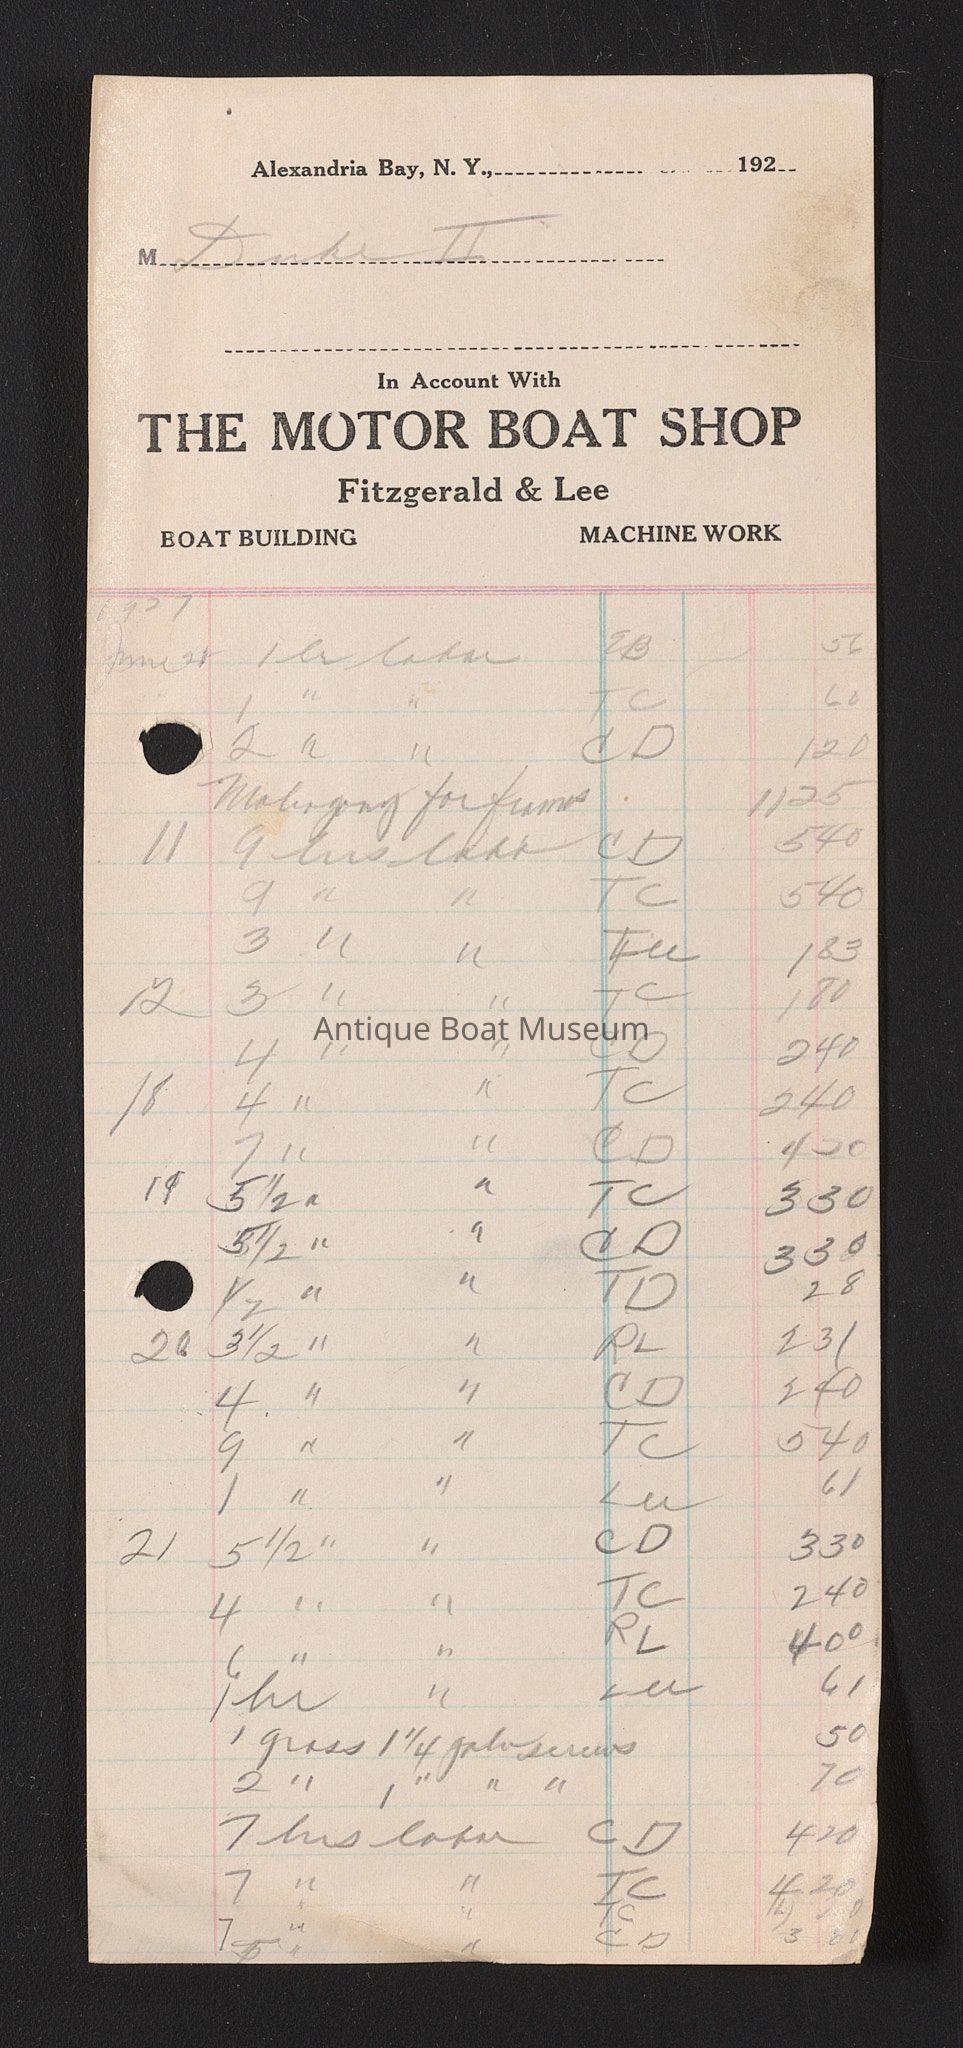 Alexandria Bay, N. Y., 192
M Duke II
In Account With
THE MOTOR BOAT SHOP
Fitzgerald & Lee
BOAT BUILDING MACHINE WORK
1927
June 1 hr labor EB 56
1 " " TC 60
2 " " CD 120
Mahogany for frames 1125
11 9 hrs labor CD 540
9 " " TC 540
3 " " Lee 183
12 3 " " TC 180
Antique Boat Museum
4 " " CD 240
18 4 " " TC 240
7 " " CD 420
19 5 1/2 " " TC 330
5 1/2 " " CD 330
1/2 " " TD 28
20 3 1/2 " " RL 231
4 " " CD 240
9 " " TC 540
1 " " Lee 61
21 5 1/2 " " CD 330
4 " " TC 240
6 " " RL 400
1 hr " Lee 61
1 gross 1 1/4 galv screws 50
2 " 1 " " " 70
7 hrs labor CD 420
7 " " TC 420
7 " " TC
5 " " CD 3